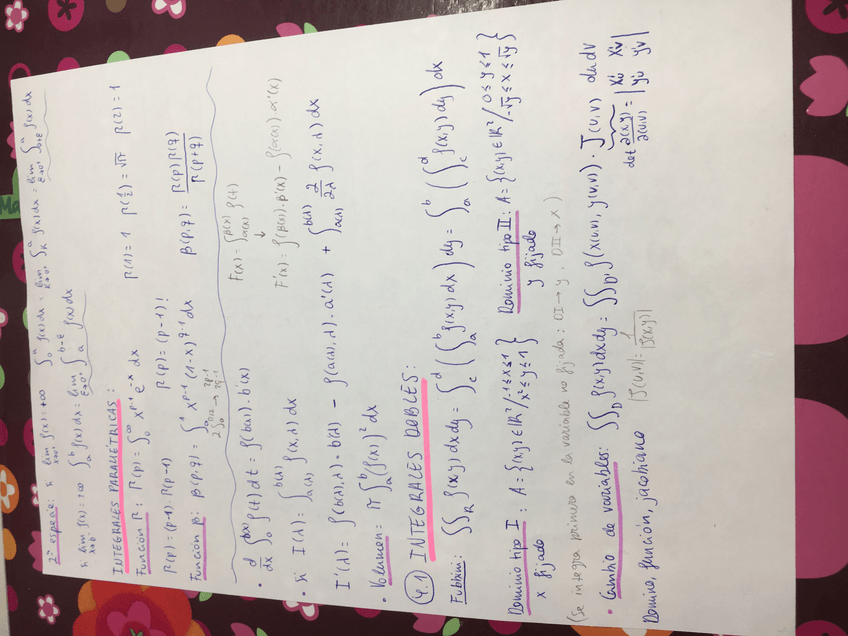 2ª especie: si lim_{x→0+} f(x) = +∞   ∫_0^a f(x)dx = lim ∫_R^a f(x)dx = lim_{ε→0+} ∫_{b+ε}^a f(x)dx
si lim_{x→b-} f(x) = +∞   ∫_a^b f(x)dx = lim_{ε→0+} ∫_a^{b-ε} f(x)dx
INTEGRALES PARAMÉTRICAS:
Función Γ: Γ(p) = ∫_0^∞ x^{p-1} e^{-x} dx   Γ(1) = 1   Γ(1/2) = √π   Γ(2) = 1
Γ(p) = (p-1)·Γ(p-1)   Γ(p) = (p-1)!
Función β: β(p,q) = ∫_0^1 x^{p-1} (1-x)^{q-1} dx   β(p,q) = Γ(p)Γ(q) / Γ(p+q)
2∫_0^{π/2} → 2p-1 2q-1
• d/dx ∫_0^{b(x)} f(t) dt = f(b(x))·b'(x)   F(x) = ∫_{α(x)}^{β(x)} f(t)
↓
F'(x) = f(β(x))·β'(x) - f(α(x))·α'(x)
• Si I(λ) = ∫_{a(λ)}^{b(λ)} f(x,λ) dx
I'(λ) = f(b(λ),λ)·b'(λ) - f(a(λ),λ)·a'(λ) + ∫_{a(λ)}^{b(λ)} ∂/∂λ f(x,λ) dx
• Volumen = π ∫_a^b (f(x))² dx
4.1 INTEGRALES DOBLES:
Fubbini: ∫∫_R f(x,y) dxdy = ∫_c^d (∫_a^b f(x,y) dx) dy = ∫_a^b (∫_c^d f(x,y) dy) dx
Dominio tipo I: A = {(x,y) ∈ ℝ² / -1≤x≤1 x²≤y≤1}   Dominio tipo II: A = {(x,y) ∈ ℝ² / 0≤y≤1 -√y≤x≤√y}
x fijado   y fijado
(Se integra primero en la variable no fijada: DI→y, DII→x)
• Cambio de variables: ∫∫_D f(x,y)dxdy = ∫∫_{D'} f(x(u,v), y(u,v))·J(u,v) dudv
Dominio, función, jacobiano   |J(u,v)| = 1/|J(x,y)|   det ∂(x,y)/∂(u,v) = |x'u x'v y'u y'v|